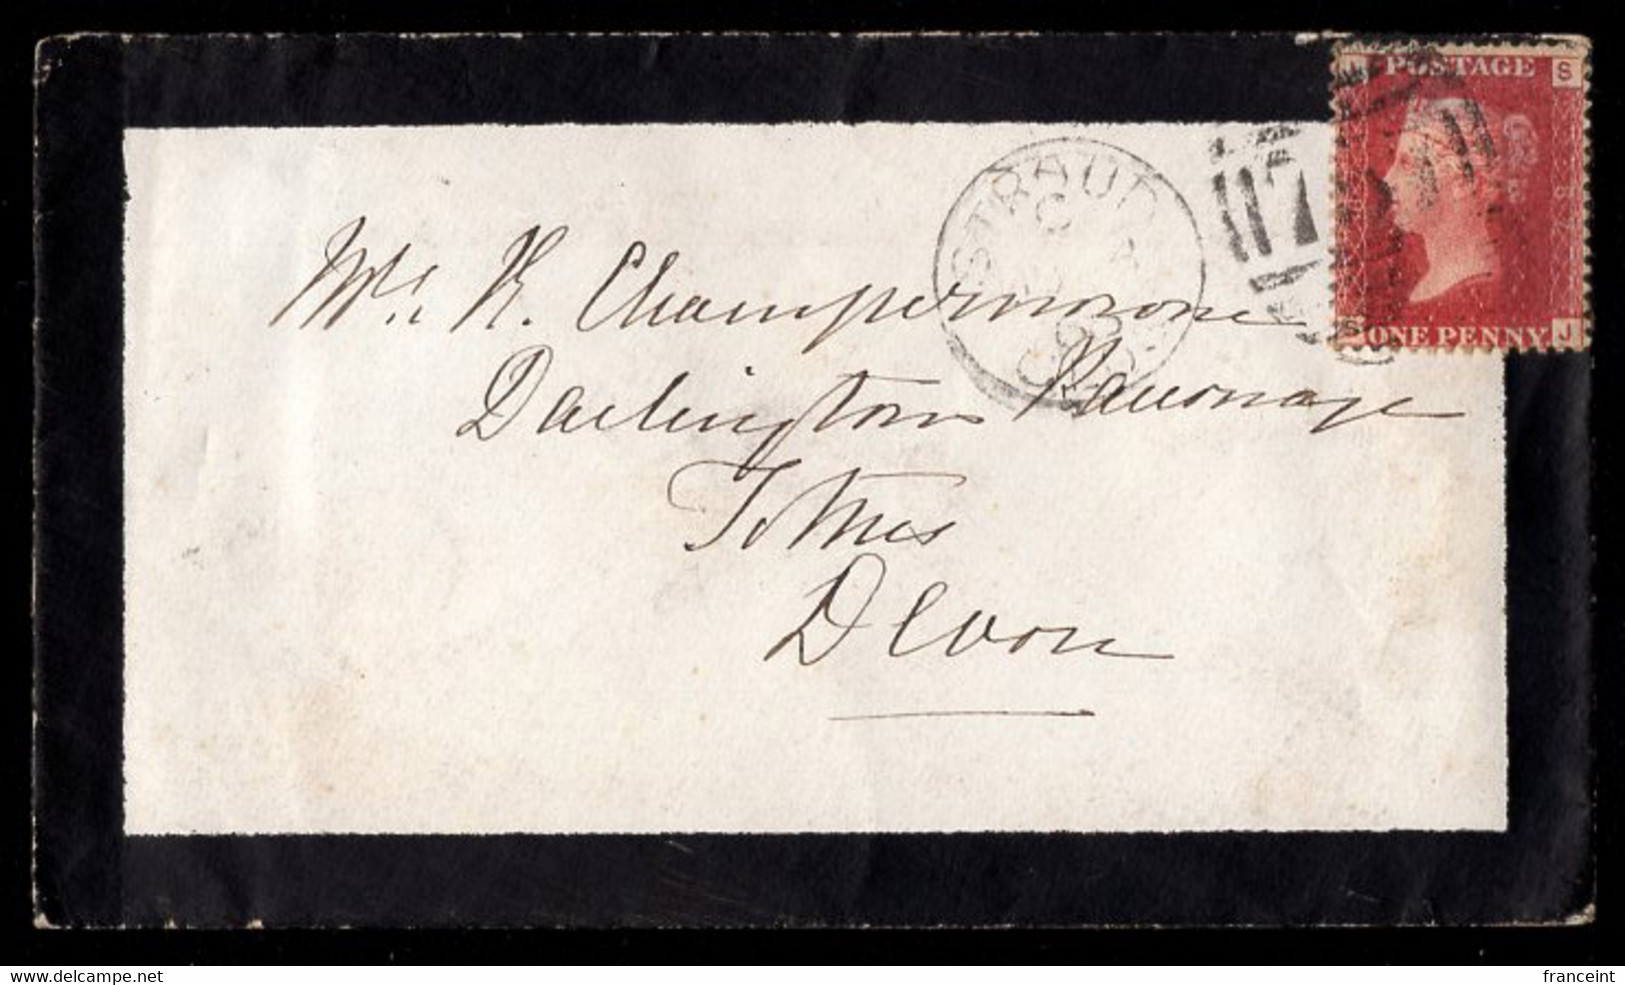 POSTAGE
S
STROUD
C
ONE PENNY
J
Mrs. R. Champernowne
Dartington Parsonage
Totnes
Devon
www.delcampe.net
franceint